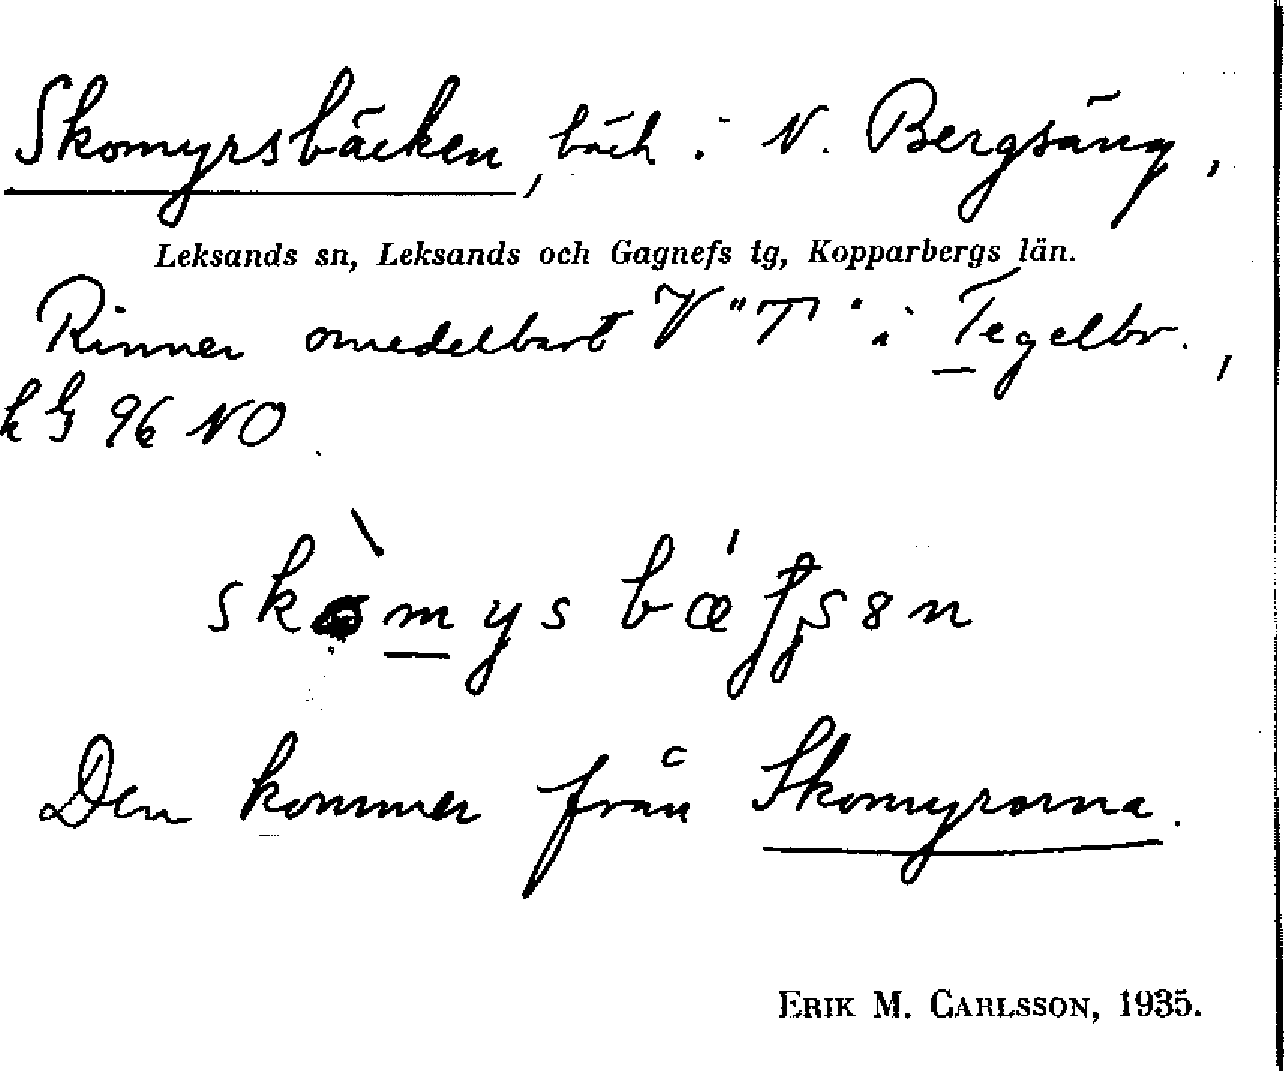 Skomyrsbäcken, bäck i N. Bergsäng,
Leksands sn, Leksands och Gagnefs tg, Kopparbergs län.
Rinner omedelbart V "T" i Tegelbr.,
k G 96 NO.
Den kommer från Skomyrorna.
ERIK M. CARLSSON, 1935.